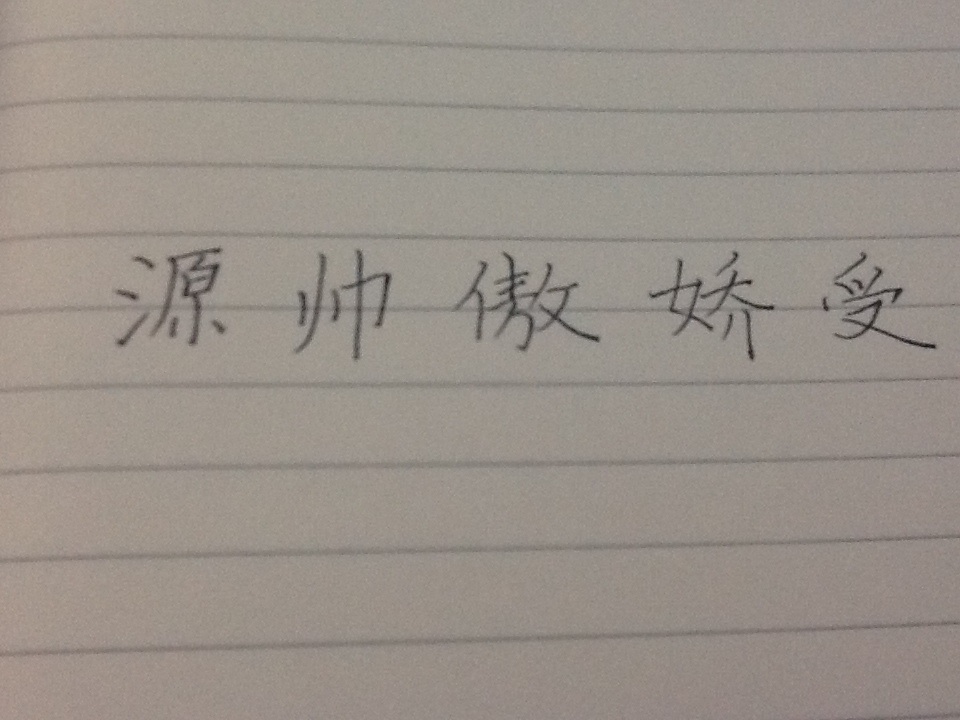 源帅傲娇受